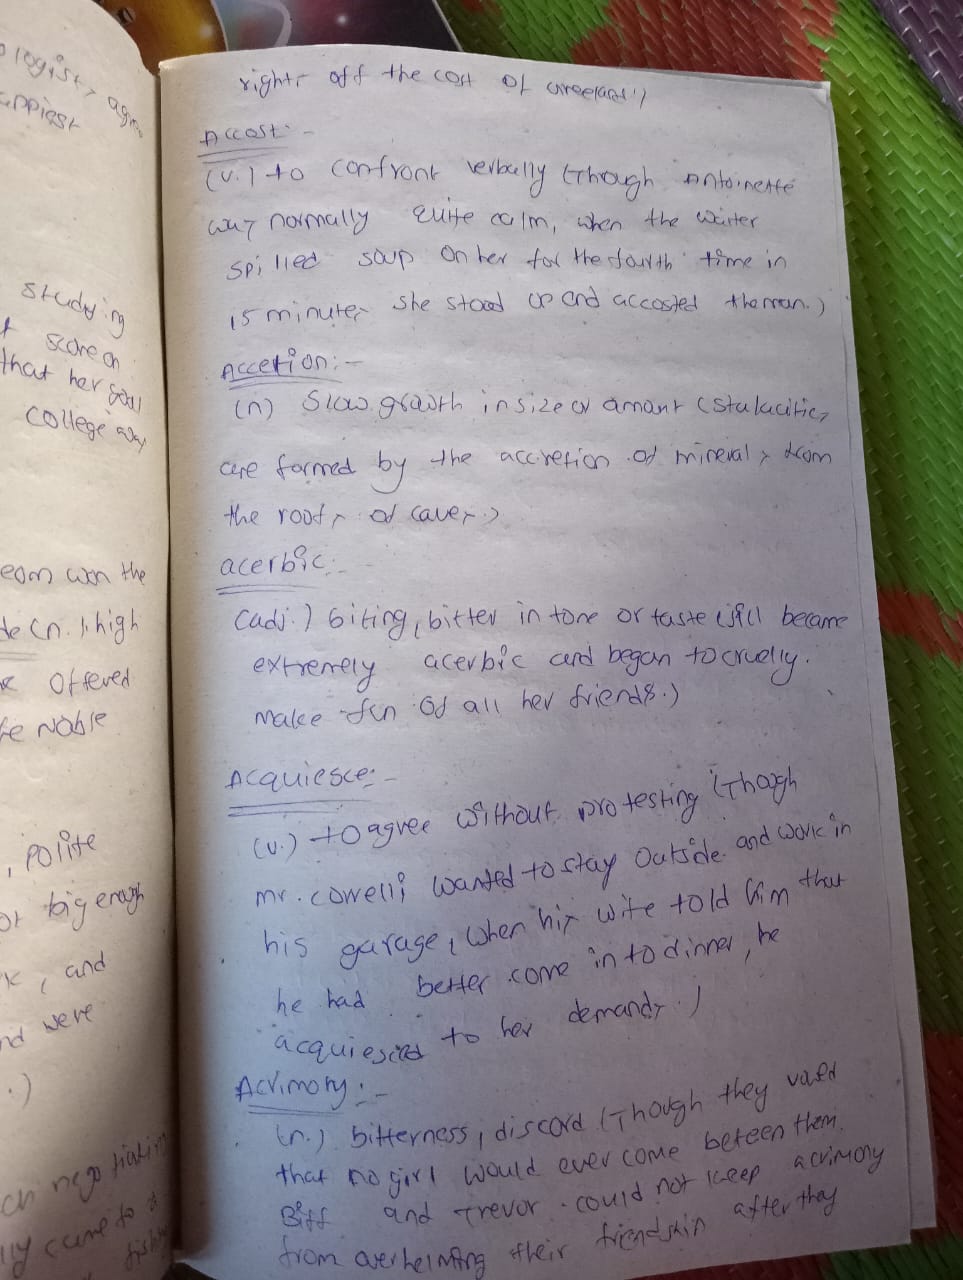 ologist, agre
appiest
studying
t score on
that her goal
college
eam won the
de (n.) high
offered
he Noble
, polite
or big enough
k, and
nd were
.)
ch negotiatin
lly came to a
fishi
rights off the cost of
Accost:-
(v.) to confront verbally (though Antoinette
was normally quite calm, when the waiter
spilled soup on her for the fourth time in
15 minutes she stood up and accosted the man.)
Accetion:-
(n) slow growth in size or amont (stalacitics
are formed by the accretion of minerals from
the roofs of caves)
acerbic:-
(adj.) biting, bitter in tone or taste (jill became
extremely acerbic and began to cruelly.
make fun of all her friends.)
Acquiesce:-
(v.) to agree without protesting (Though
mr. cowelli wanted to stay outside and work in
his garage, when his wife told him that
he had better come in to dinner, he
acquiesced to her demands.)
Acrimony:-
(n.) bitterness, discord (Though they vaed
that no girl would ever come beteen them.
Biff and Trevor could not keep acrimony
from overhelming their friendshin after they